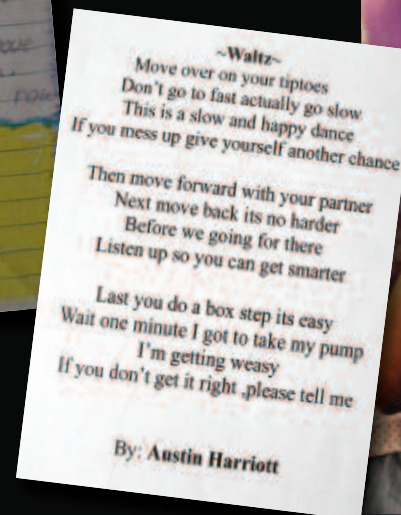 ~Waltz~
Move over on your tiptoes
Don't go to fast actually go slow
This is a slow and happy dance
If you mess up give yourself another chance
Then move forward with your partner
Next move back its no harder
Before we going for there
Listen up so you can get smarter
Last you do a box step its easy
Wait one minute I got to take my pump
I'm getting weasy
If you don't get it right ,please tell me
By: Austin Harriott